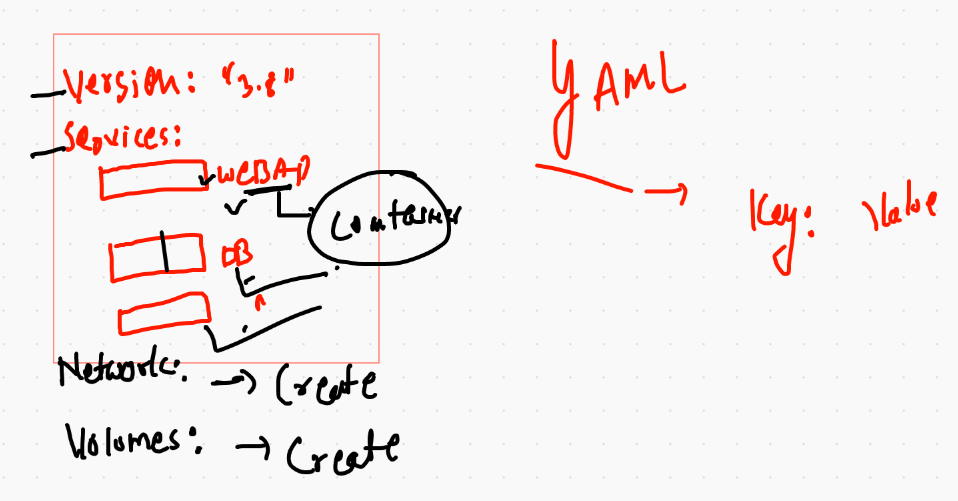 Version: "3.8"
Services:
WEBAP
Container
DB
Network: → Create
Volumes: → Create
YAML
→ Key: Value